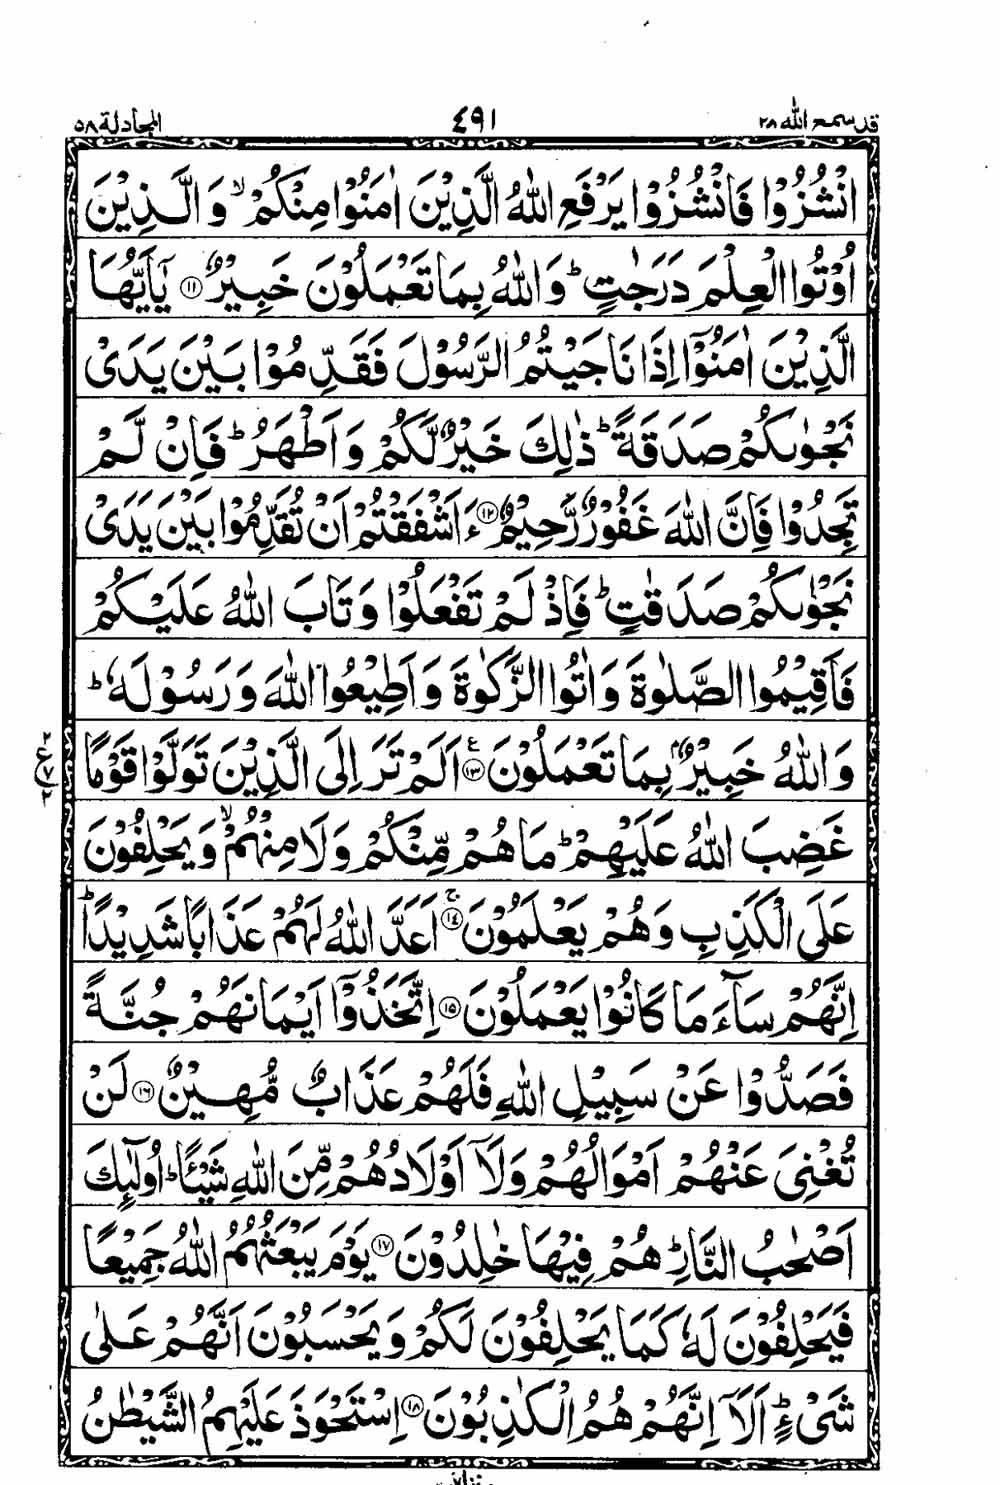 قد سمع الله ٢٨ ٤٩١ المجادلة ٥٨
انْشُزُوْا فَانْشُزُوْا يَرْفَعِ اللّٰهُ الَّذِيْنَ اٰمَنُوْا مِنْكُمْ ۙ وَالَّذِيْنَ
اُوْتُوا الْعِلْمَ دَرَجٰتٍ ؕ وَاللّٰهُ بِمَا تَعْمَلُوْنَ خَبِيْرٌ ۝۱۱ يٰۤاَيُّهَا
الَّذِيْنَ اٰمَنُوْۤا اِذَا نَاجَيْتُمُ الرَّسُوْلَ فَقَدِّمُوْا بَيْنَ يَدَىْ
نَجْوٰىكُمْ صَدَقَةً ؕ ذٰلِكَ خَيْرٌ لَّكُمْ وَاَطْهَرُ ؕ فَاِنْ لَّمْ
تَجِدُوْا فَاِنَّ اللّٰهَ غَفُوْرٌ رَّحِيْمٌ ۝۱۲ ءَاَشْفَقْتُمْ اَنْ تُقَدِّمُوْا بَيْنَ يَدَىْ
نَجْوٰىكُمْ صَدَقٰتٍ ؕ فَاِذْ لَمْ تَفْعَلُوْا وَتَابَ اللّٰهُ عَلَيْكُمْ
فَاَقِيْمُوا الصَّلٰوةَ وَاٰتُوا الزَّكٰوةَ وَاَطِيْعُوا اللّٰهَ وَرَسُوْلَهٗ ؕ
وَاللّٰهُ خَبِيْرٌۢ بِمَا تَعْمَلُوْنَ ۝۱۳ اَلَمْ تَرَ اِلَى الَّذِيْنَ تَوَلَّوْا قَوْمًا
٢ ع ٧ ٢
غَضِبَ اللّٰهُ عَلَيْهِمْ ؕ مَا هُمْ مِّنْكُمْ وَلَا مِنْهُمْ ۙ وَيَحْلِفُوْنَ
عَلَى الْكَذِبِ وَهُمْ يَعْلَمُوْنَ ۝۱۴ۚ اَعَدَّ اللّٰهُ لَهُمْ عَذَابًا شَدِيْدًا ؕ
اِنَّهُمْ سَآءَ مَا كَانُوْا يَعْمَلُوْنَ ۝۱۵ اِتَّخَذُوْۤا اَيْمَانَهُمْ جُنَّةً
فَصَدُّوْا عَنْ سَبِيْلِ اللّٰهِ فَلَهُمْ عَذَابٌ مُّهِيْنٌ ۝۱۶ لَنْ
تُغْنِىَ عَنْهُمْ اَمْوَالُهُمْ وَلَاۤ اَوْلَادُهُمْ مِّنَ اللّٰهِ شَيْـًٔا ؕ اُولٰٓئِكَ
اَصْحٰبُ النَّارِ ؕ هُمْ فِيْهَا خٰلِدُوْنَ ۝۱۷ يَوْمَ يَبْعَثُهُمُ اللّٰهُ جَمِيْعًا
فَيَحْلِفُوْنَ لَهٗ كَمَا يَحْلِفُوْنَ لَكُمْ وَيَحْسَبُوْنَ اَنَّهُمْ عَلٰى
شَىْءٍ ؕ اَلَاۤ اِنَّهُمْ هُمُ الْكٰذِبُوْنَ ۝۱۸ اِسْتَحْوَذَ عَلَيْهِمُ الشَّيْطٰنُ